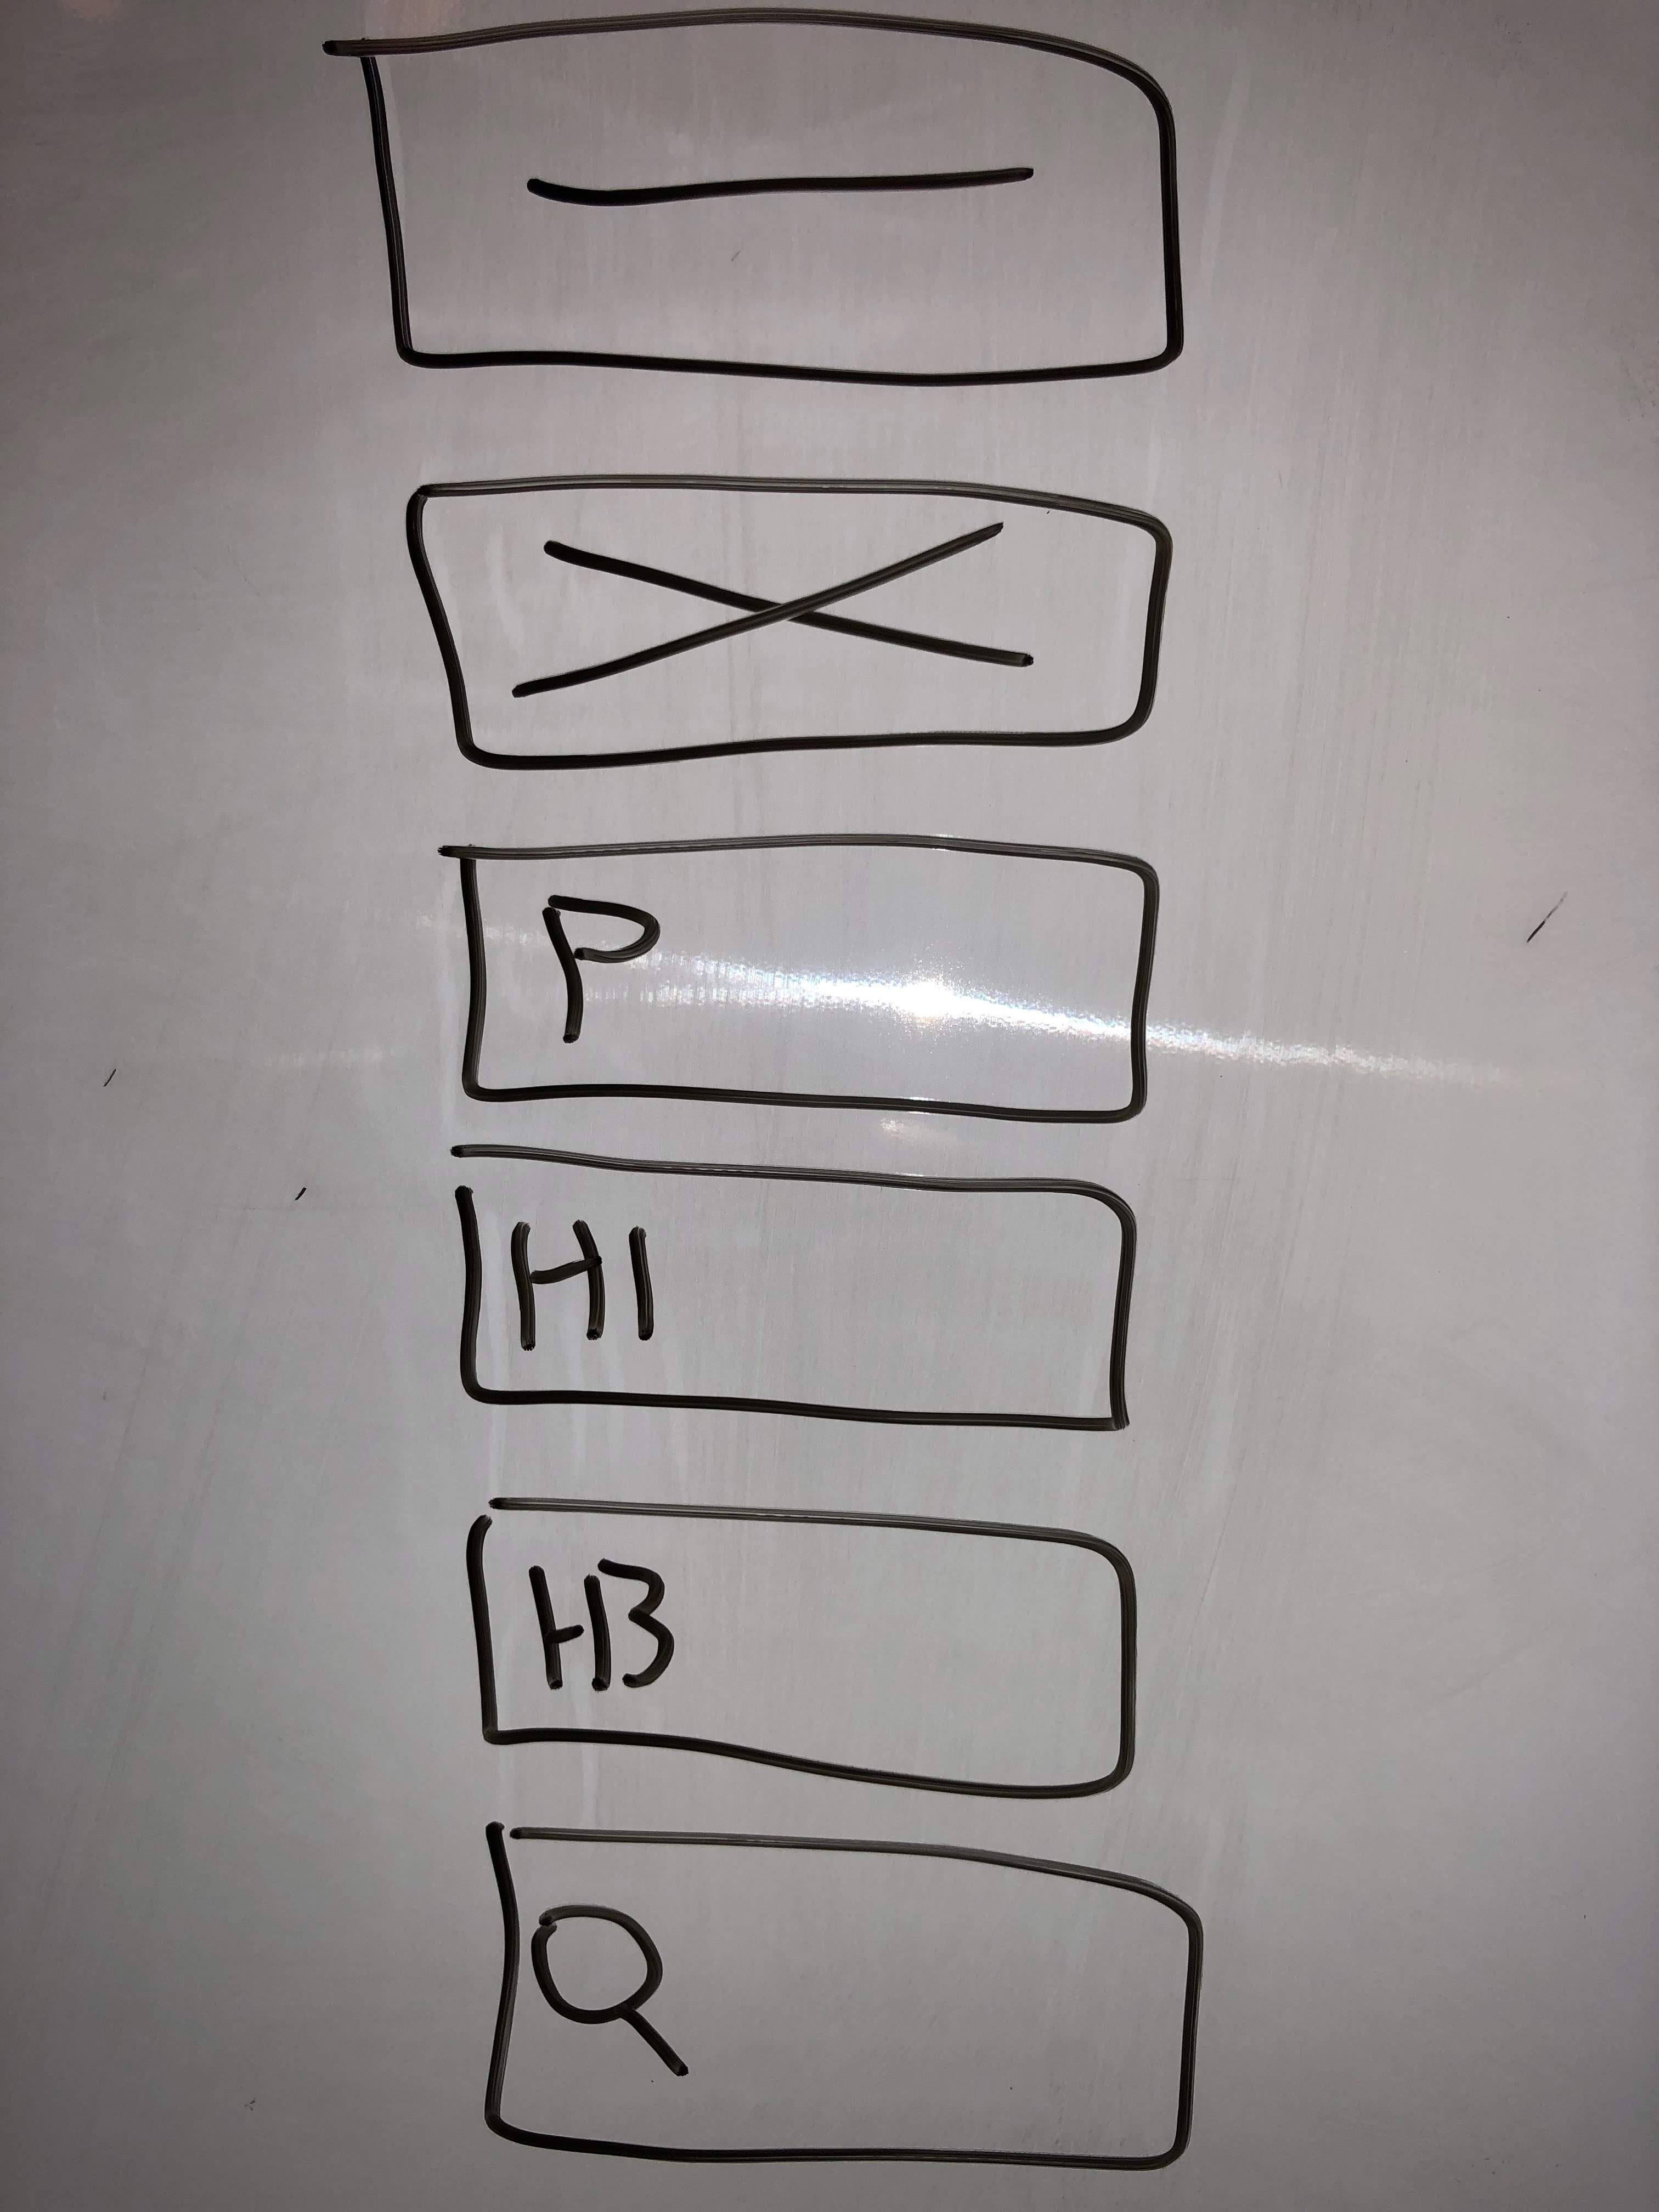 P
H1
H3